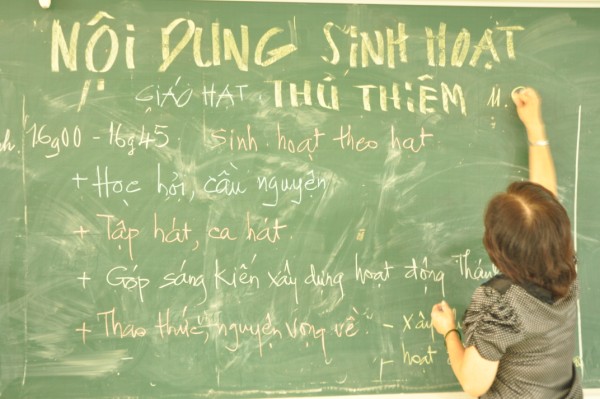 NỘI DUNG SINH HOẠT
GIÁO HẠT THỦ THIÊM
16g00 - 16g45 Sinh hoạt theo hạt
+ Học hỏi, cầu nguyện
+ Tập hát, ca hát.
+ Góp sáng kiến xây dựng hoạt động
+ Thao thức, nguyện vọng về: -
- hoạt